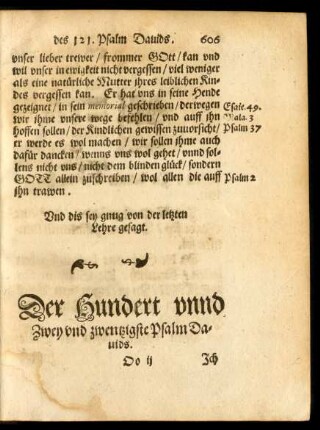 des 121. Psalm Dauids. 606
vnser lieber trewer / frommer GOtt / kan vnd
wil vnser in ewigkeit nicht vergessen / viel weniger
als eine natürliche Mutter ihres leiblichen Kin-
des vergessen kan. Er hat vns in seine Hende
gezeignet / in sein memorial geschrieben / derwegen Esaie 49.
wir ihme vnsere wege befehlen / vnd auff ihn Mala. 3
hoffen sollen / der Kindlichen gewissen zuuorsicht / Psalm 37
er werde es wol machen / wir sollen ihme auch
dafür dancken / wenns vns wol gehet / vnnd sol-
lens nicht vns / nicht dem blinden glück / sondern
GOTT allein zuschreiben / wol allen die auff Psalm 2
ihn trawen.
Vnd dis sey gnug von der letzten
Lehre gesagt.
Der Hundert vnnd
Zwey vnd zwentzigste Psalm Da-
uids.
Oo ij Ich